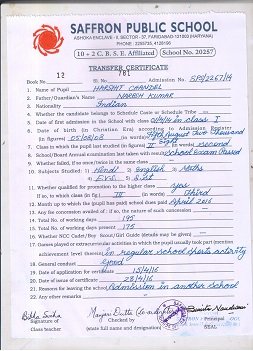 SAFFRON PUBLIC SCHOOL
ASHOKA ENCLAVE - II, SECTOR - 37, FARIDABAD-121003 (HARYANA)
PHONE : 2255735, 4128196
10 + 2 C. B. S. E. Affiliated School No. 20257
TRANSFER CERTIFICATE
Book No. 12 Sl. No. 781 Admission No. SPS/2267/14
1. Name of Pupil HARSHT CHANDEL
2. Father/Guardian's Name NARESH KUMAR
3. Nationality Indian
4. Whether the candidate belongs to Schedule Caste or Schedule Tribe
5. Date of first admission in the School with class in class I
6. Date of birth (in Christian Era) according to Admission Register
(in figures) 03/08/08 August Two Thousand Eight
7. Class in which the pupil last studied (in figures) II (in words) second
8. School/Board Annual examination last taken with result School Exam Passed
9. Whether failed, if so once/twice in the same class
10. Subjects Studied : 1. Hindi 2. English 3. Maths
4. E.V.S. 5. S.St
11. Whether qualified for promotion to the higher class yes
If so, to which class (in fig.) III (in words) Third
12. Month up to which the pupil has paid school dues paid April 2016
13. Any fee concession availed of : if so, the nature of such concession
14. Total No. of working days 195
15. Total No. of working days present 175
16. Whether NCC Cadet/Boy Scout/Girl Guide (details may be given)
17. Games played or extracurricular activities in which the pupil usually took part (mention
achievement level therein) in regular school sports activity
18. General conduct good
19. Date of application of certificate 15/4/16
20. Date of issue of certificate 23/4/16
21. Reasons for leaving the school Admission in another school
22. Any other remarks
Signature of
Class teacher
(state full name and designation)
Principal
SEAL